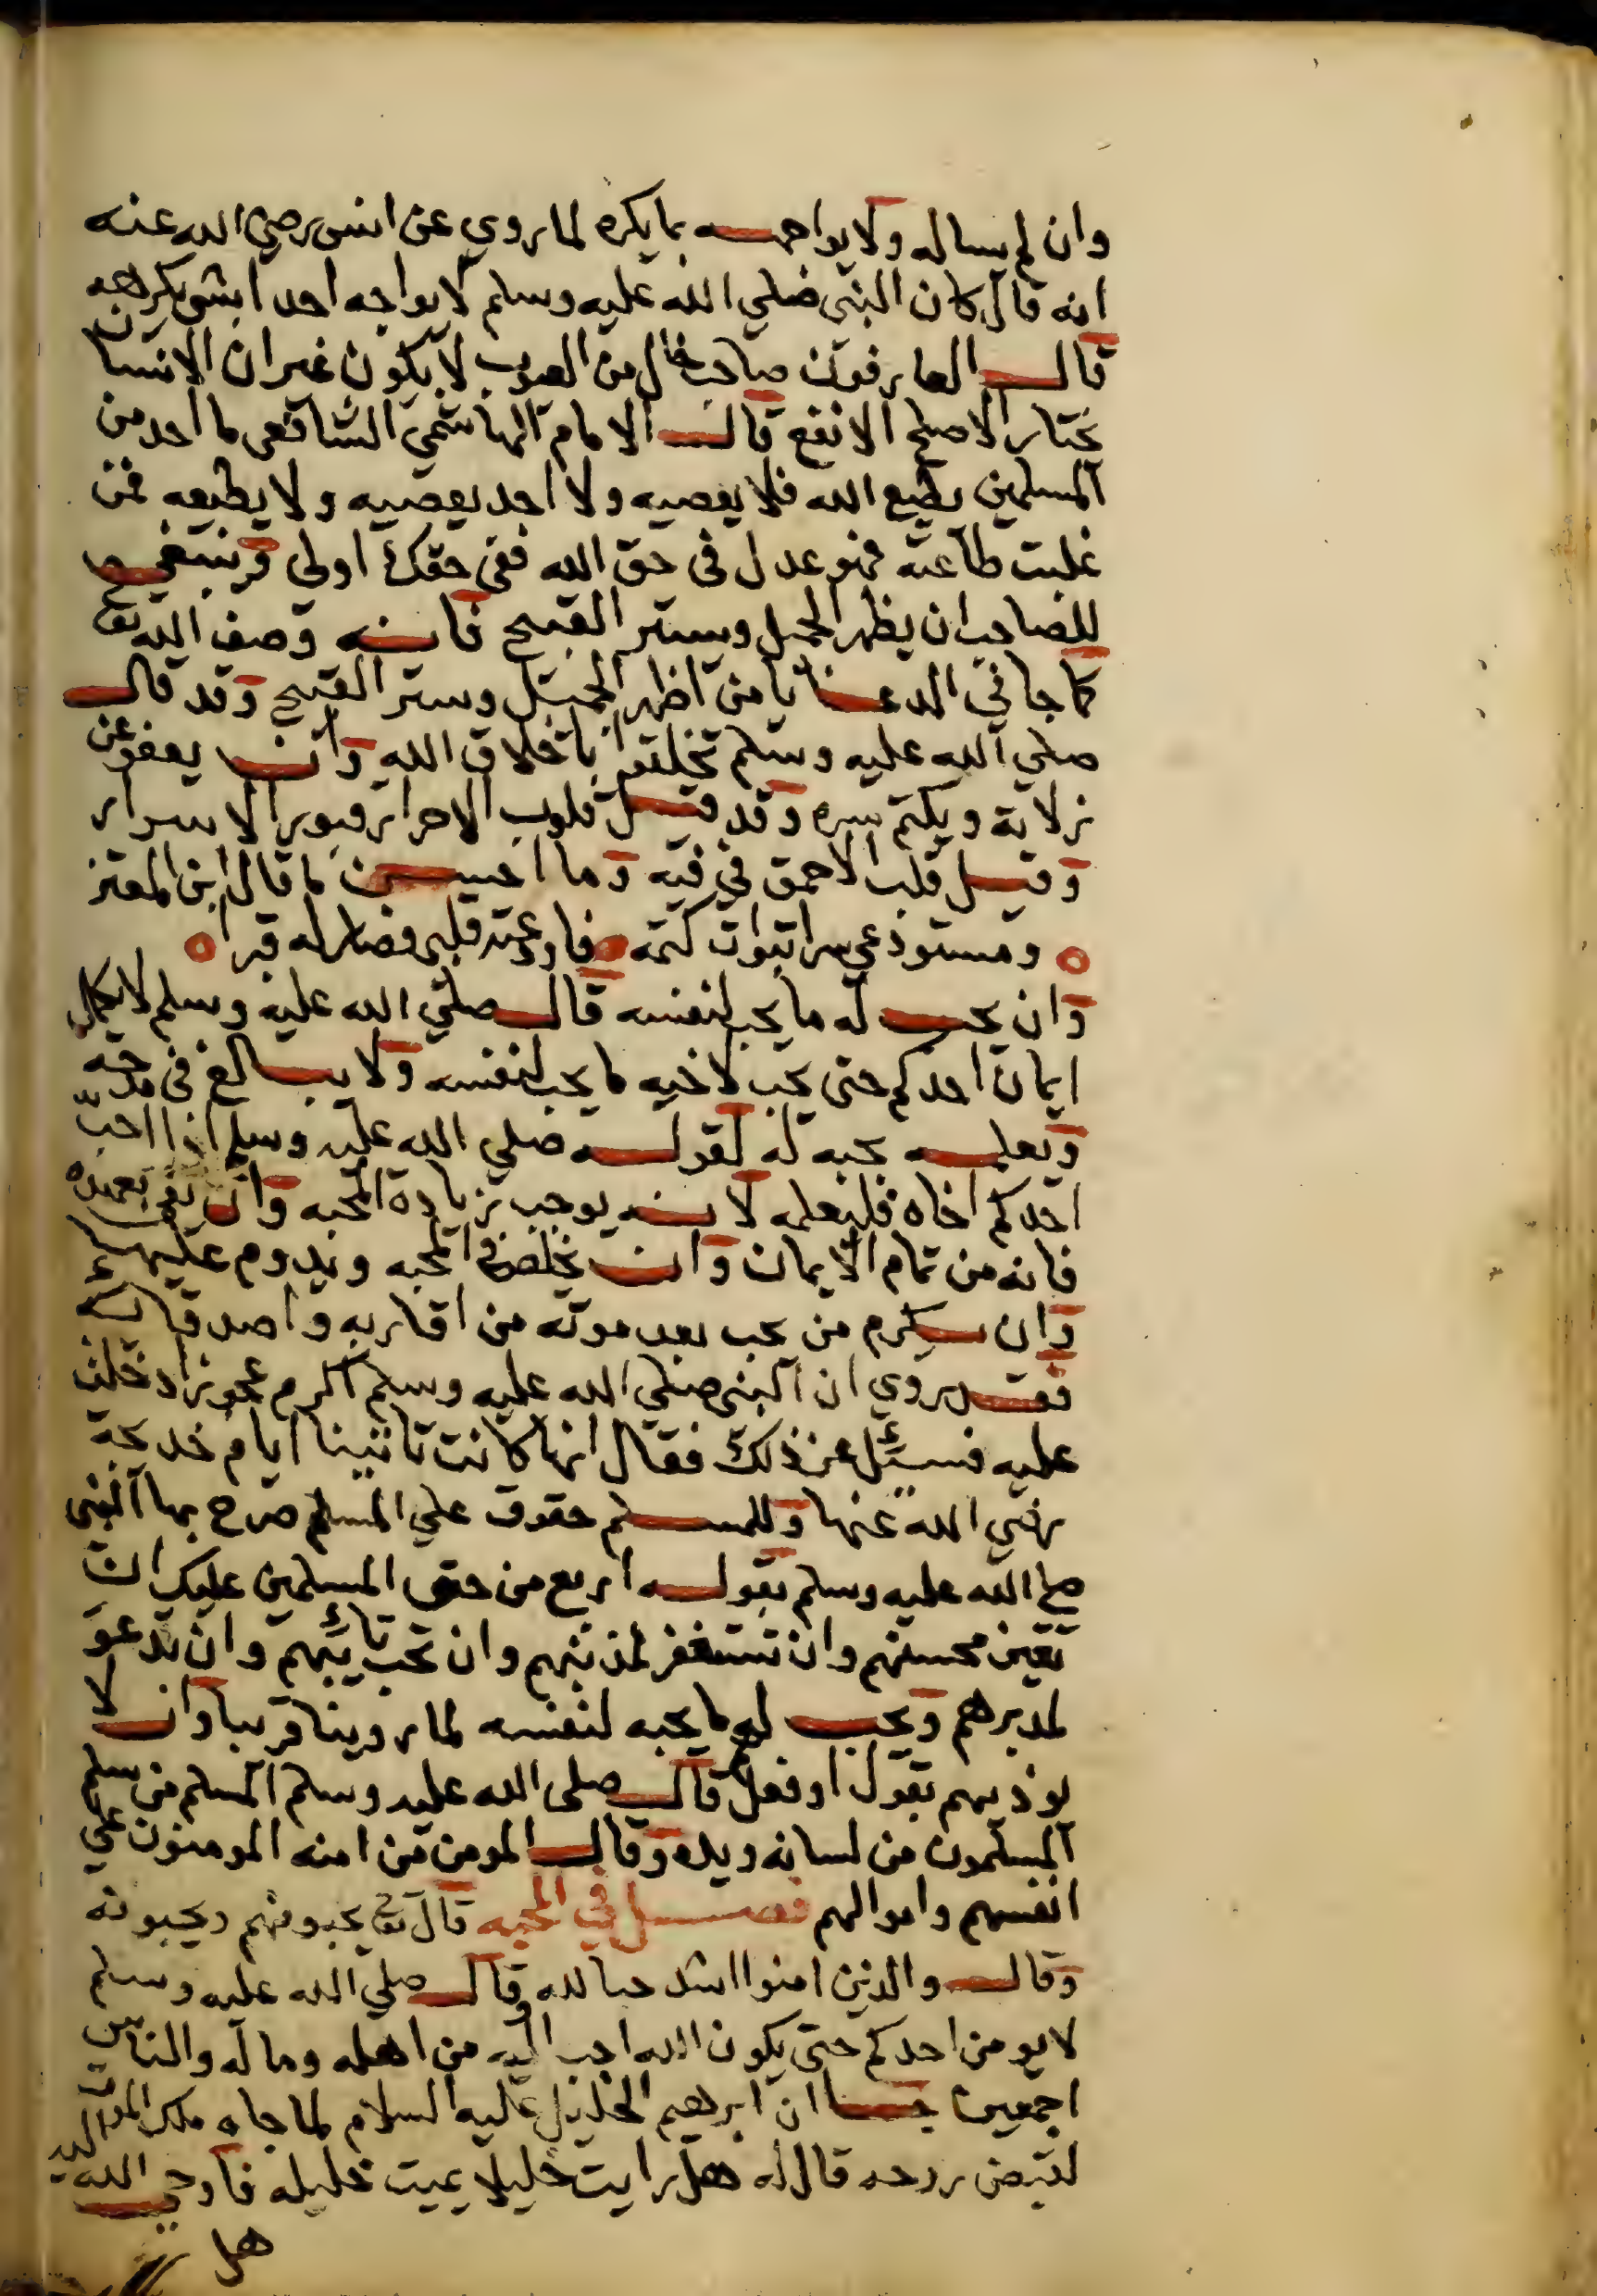 وان لم يساله ولا يواجهه بما يكره لما روي عن انس رضي الله عنه
انه قال كان النبي صلي الله عليه وسلم لا يواجه احدا بشي يكرهه
قال العارفون صاحب خال من العيوب لا يكون غير ان الانسان
يختار الاصلح الانفع قال الامام الهاشمي الشافعي ما احد من
المسلمين يطيع الله فلا يعصيه ولا احد يعصيه ولا يطيعه فمن
غلبت طاعته فهو عدل في حق الله ففي حقك اولى وينبغي
للصاحب ان يظهر الجميل ويستر القبيح فانه وصف الله تع
كما جا في الدعا يا من اظهر الجميل وستر القبيح وقد قال
صلي الله عليه وسلم تخلقوا باخلاق الله وان يعفو عن
زلاته ويكتم سره وقد قيل قلوب الاحرار قبور الاسرار
وقيل قلب الاحمق في فيه وما احسن ما قال ابن المعتز
ومستودعي سرا تبوات كتمه فاودعته قلبي فصار له قبرا
وان يحب له ما يحب لنفسه قال صلي الله عليه وسلم لا يكمل
ايمان احدكم حتى يحب لاخيه ما يحب لنفسه ولا يبالغ في مدحه
ويعلمه بحبه له لقوله صلي الله عليه وسلم اذا احب
احدكم اخاه فليعلمه لانه يوجب زيادة المحبه وان يفي بعهده
فانه من تمام الايمان وان يخلص في المحبه ويدوم عليها
وان يكرم من يحب بعد موته من اقاربه واصدقائه
فقد روي ان النبي صلي الله عليه وسلم اكرم عجوزا دخلت
عليه فسئل عن ذلك فقال انها كانت تاتينا ايام خديجة
رضي الله عنها وللمسلم حقوق علي المسلم صرح بها النبي
صلي الله عليه وسلم بقوله اربع من حق المسلمين عليك ان
تعين محسنهم وان تستغفر لمذنبهم وان تحب تائبهم وان تدعو
لمدبرهم ويحب لهم ما يحبه لنفسه لما روينا قريبا وان لا
يوذيهم بقول او فعل قال صلى الله عليه وسلم المسلم من سلم
المسلمون من لسانه ويده وقال المومن من امنه المومنون علي
انفسهم واموالهم فصل في المحبه قال تع يحبونهم ويحبونه
وقال والذين امنوا اشد حبا لله وقال صلي الله عليه وسلم
لا يومن احدكم حتى يكون الله احب اليه من اهله وماله والناس
اجمعين جا ان ابرهيم الخليل عليه السلام لما جاه ملك الموت
لقبض روحه قال له هل رايت خليلا يميت خليله فاوحي الله اليه
هل